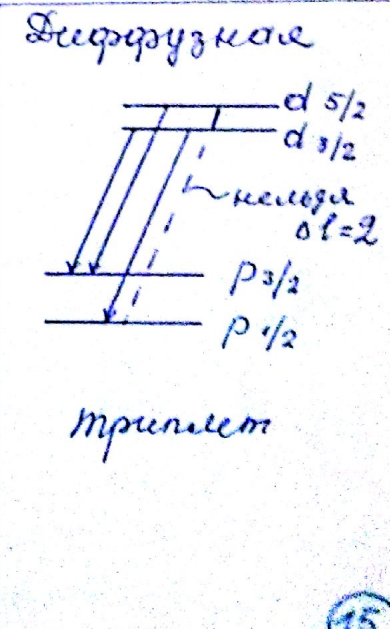 Диффузная
d 5/2
d 3/2
нельзя
Δl=2
p 3/2
p 1/2
триплет
15